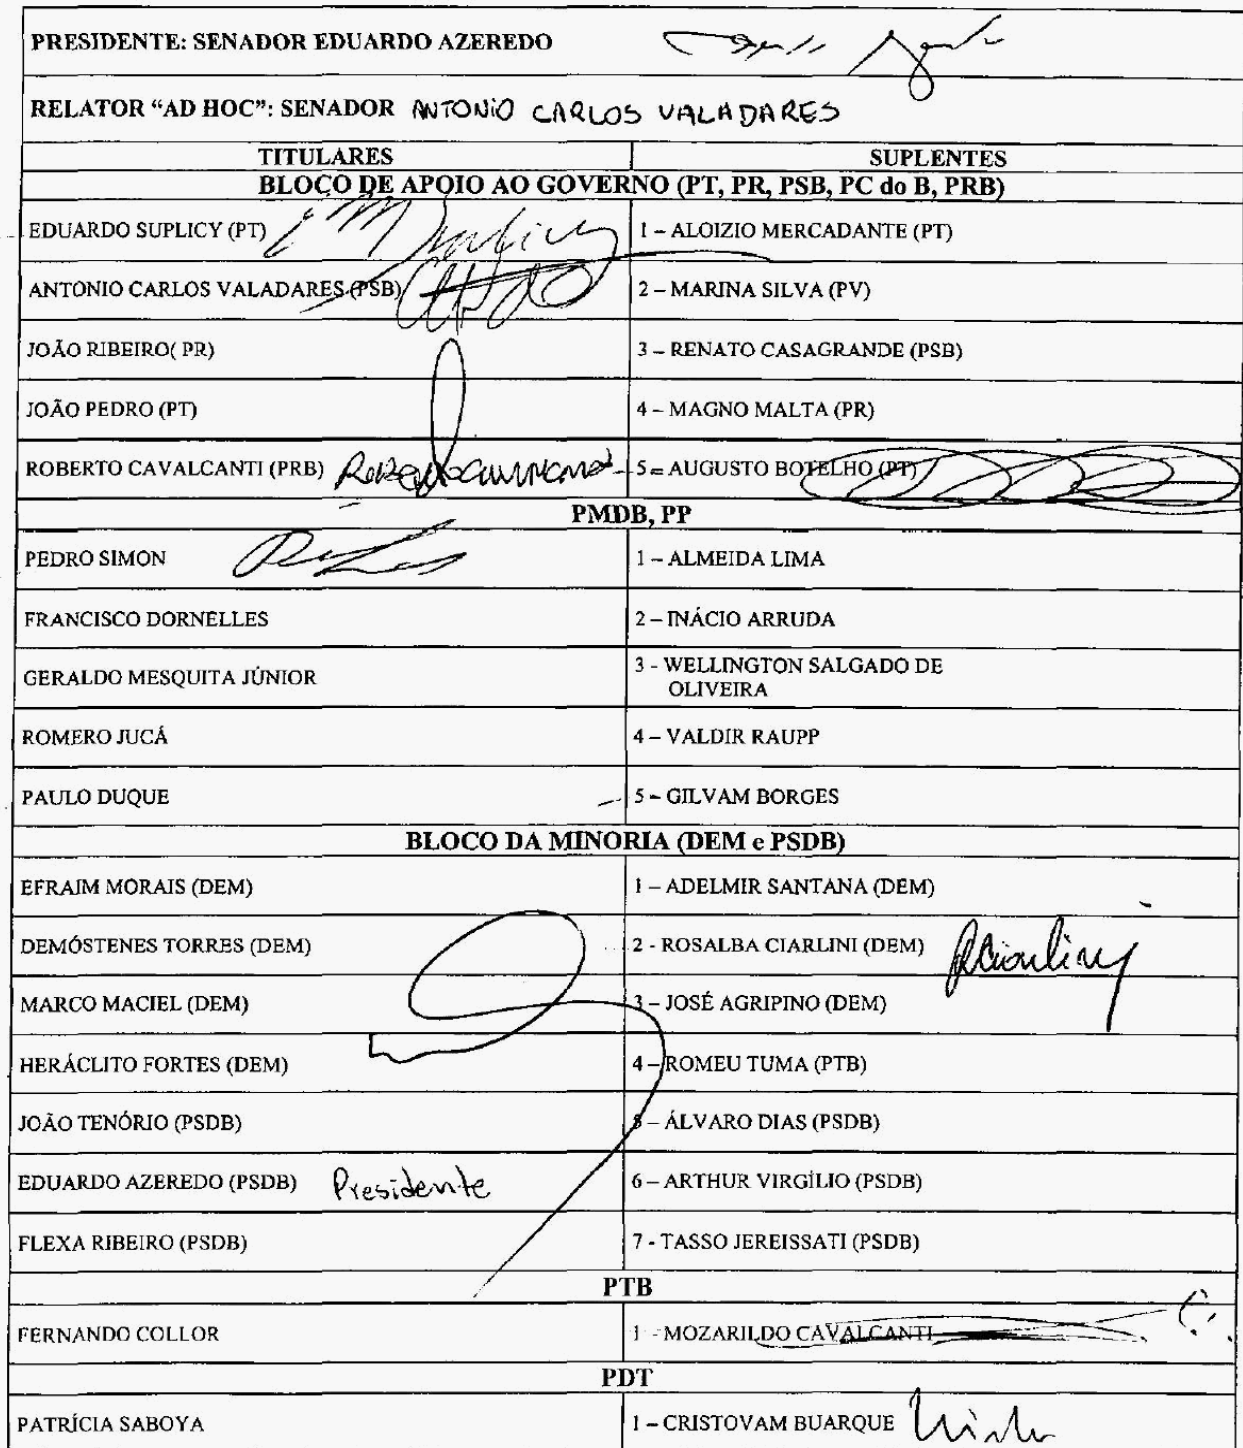 PRESIDENTE: SENADOR EDUARDO AZEREDO
RELATOR “AD HOC”: SENADOR ANTONIO CARLOS VALADARES
TITULARES SUPLENTES
BLOCO DE APOIO AO GOVERNO (PT, PR, PSB, PC do B, PRB)
EDUARDO SUPLICY (PT) 1 – ALOIZIO MERCADANTE (PT)
ANTONIO CARLOS VALADARES (PSB) 2 – MARINA SILVA (PV)
JOÃO RIBEIRO( PR) 3 – RENATO CASAGRANDE (PSB)
JOÃO PEDRO (PT) 4 – MAGNO MALTA (PR)
ROBERTO CAVALCANTI (PRB) 5 – AUGUSTO BOTELHO (PT)
PMDB, PP
PEDRO SIMON 1 – ALMEIDA LIMA
FRANCISCO DORNELLES 2 – INÁCIO ARRUDA
GERALDO MESQUITA JÚNIOR 3 - WELLINGTON SALGADO DE
OLIVEIRA
ROMERO JUCÁ 4 – VALDIR RAUPP
PAULO DUQUE 5 – GILVAM BORGES
BLOCO DA MINORIA (DEM e PSDB)
EFRAIM MORAIS (DEM) 1 – ADELMIR SANTANA (DEM)
DEMÓSTENES TORRES (DEM) 2 - ROSALBA CIARLINI (DEM)
MARCO MACIEL (DEM) 3 – JOSÉ AGRIPINO (DEM)
HERÁCLITO FORTES (DEM) 4 – ROMEU TUMA (PTB)
JOÃO TENÓRIO (PSDB) 5 – ÁLVARO DIAS (PSDB)
EDUARDO AZEREDO (PSDB) Presidente 6 – ARTHUR VIRGÍLIO (PSDB)
FLEXA RIBEIRO (PSDB) 7 - TASSO JEREISSATI (PSDB)
PTB
FERNANDO COLLOR 1 - MOZARILDO CAVALCANTI
PDT
PATRÍCIA SABOYA 1 – CRISTOVAM BUARQUE